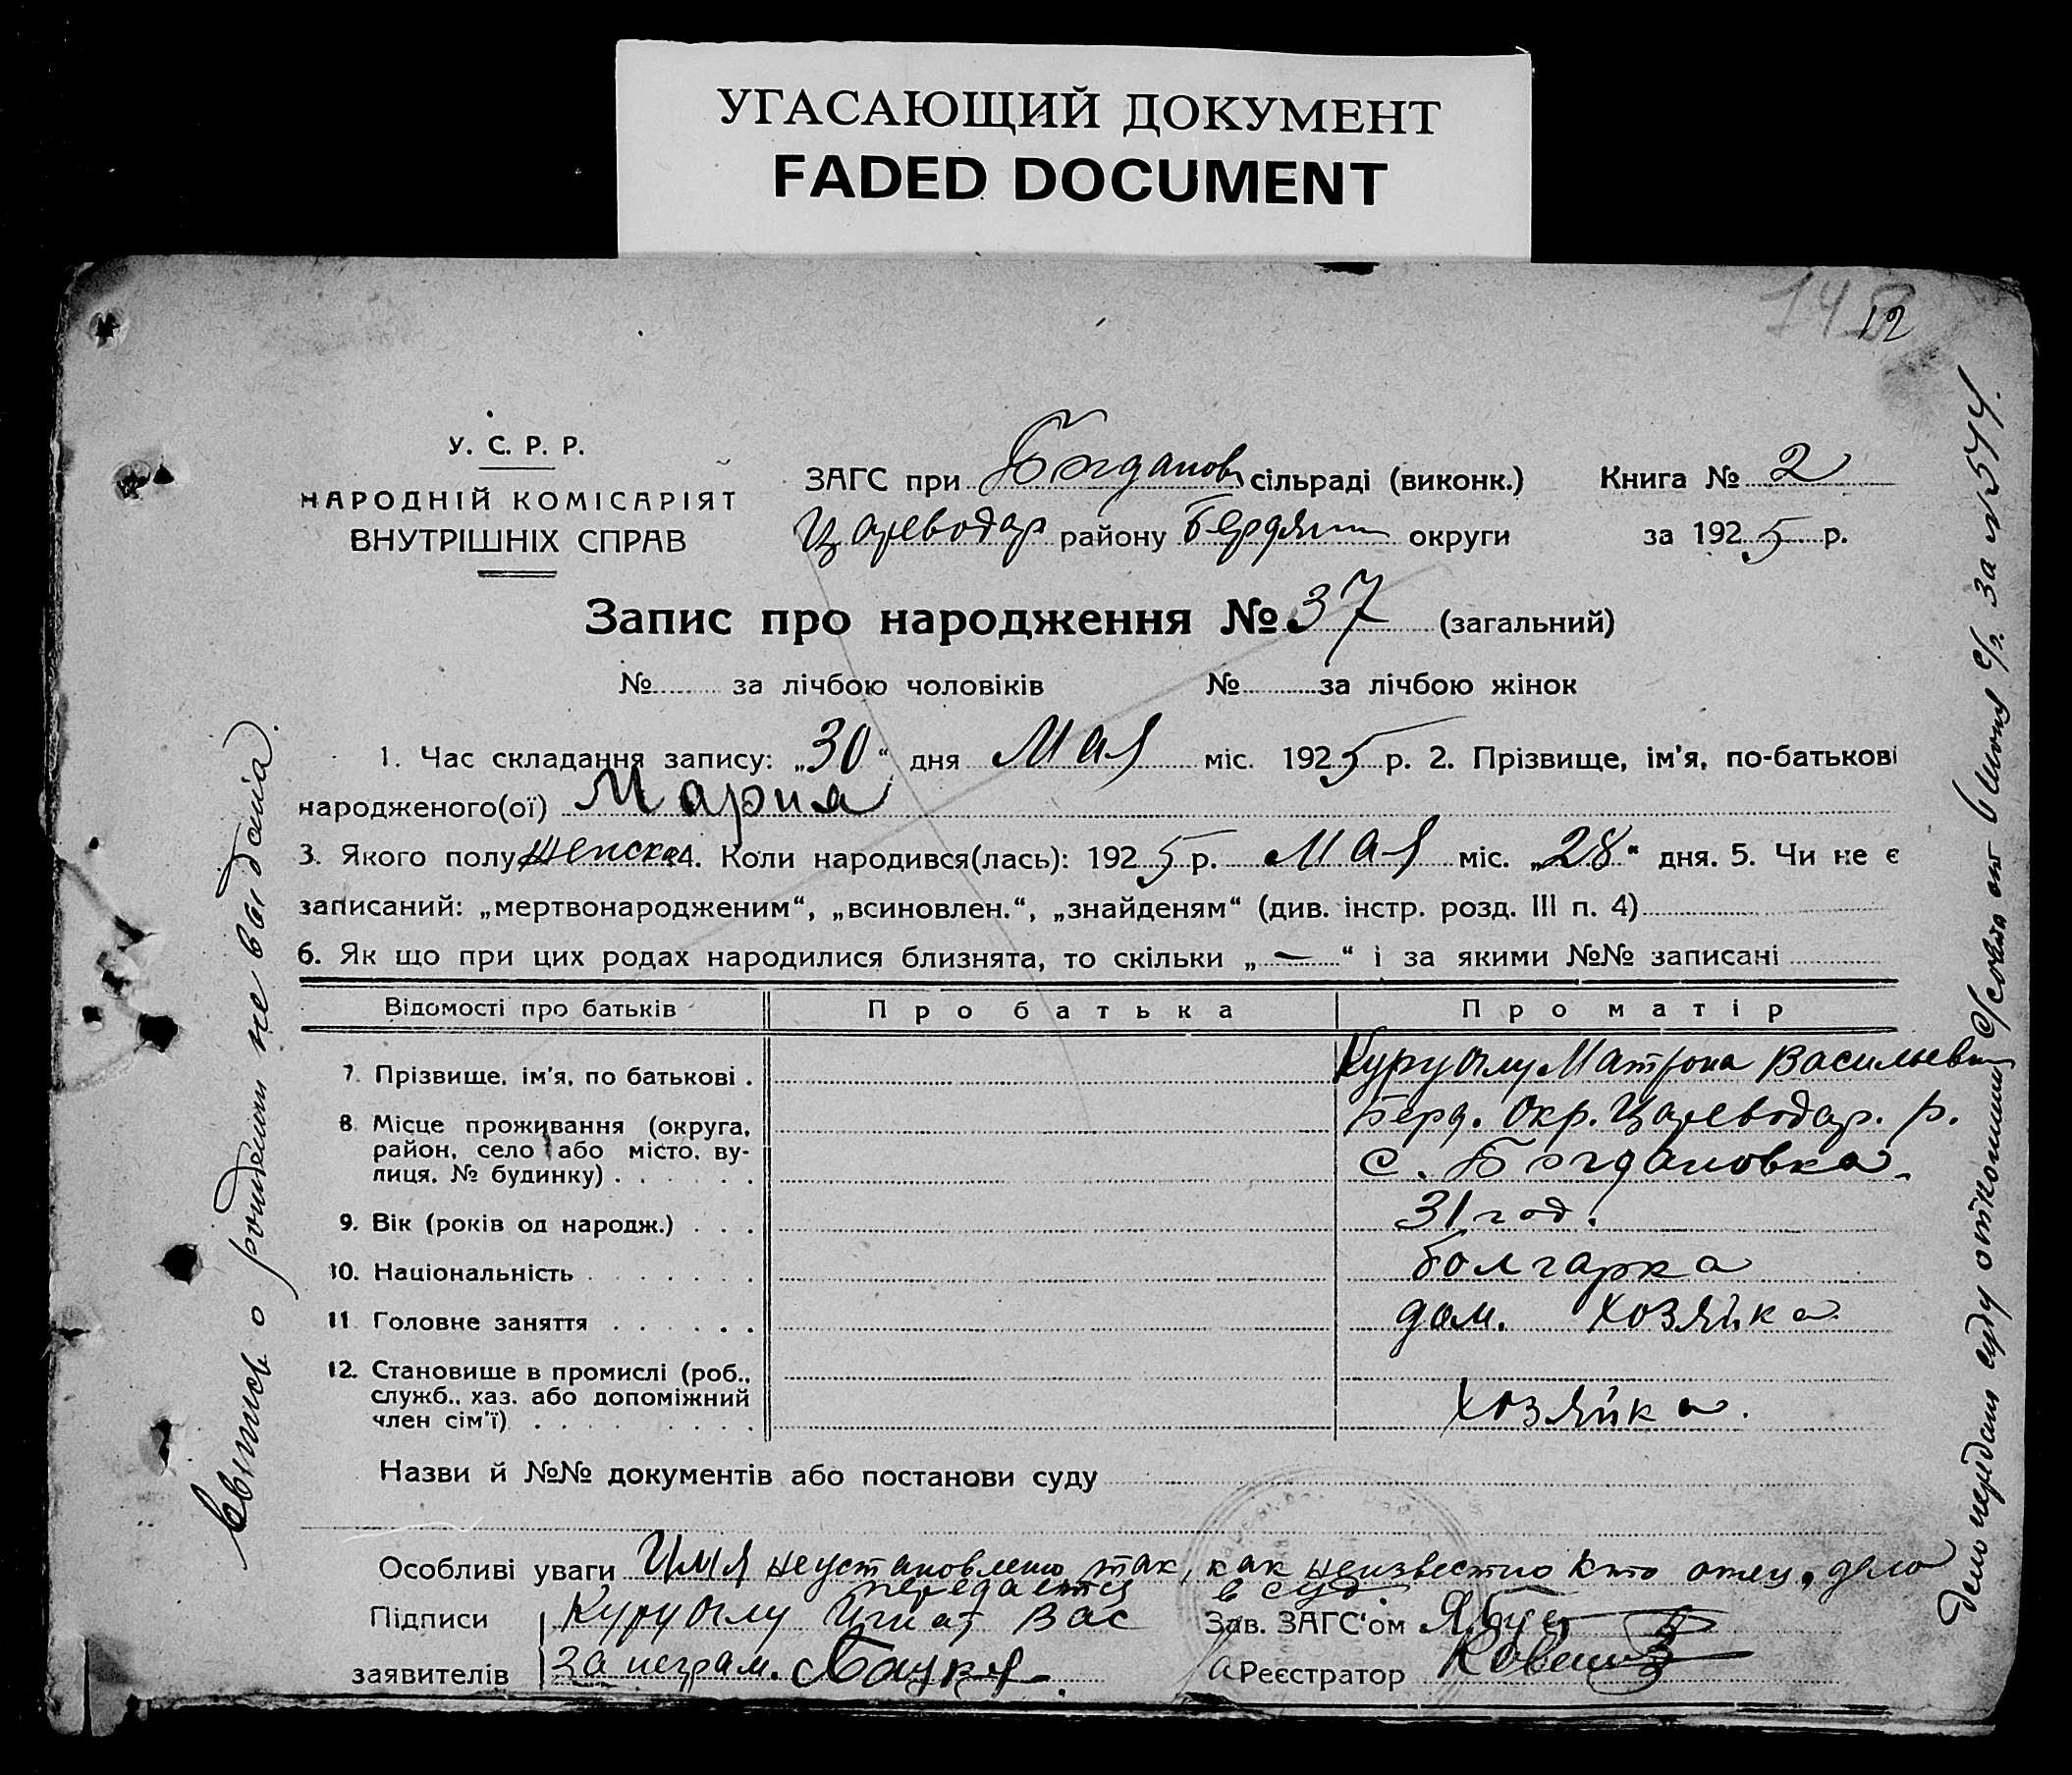 УГАСАЮЩИЙ ДОКУМЕНТ
FADED DOCUMENT
12
У. С. Р. Р.
НАРОДНІЙ КОМІСАРІЯТ
ВНУТРІШНІХ СПРАВ
ЗАГС при Богданов сільраді (виконк.)
Цареводар району Бердян округи
Книга № 2
за 1925 р.
Запис про народження № 37 (загальний)
№ за лічбою чоловіків № за лічбою жінок
1. Час складання запису: „30“ дня Мая міс. 1925 р. 2. Прізвище, ім'я, по-батькові
народженого(ої) Мария
3. Якого полу женска 4. Коли народився(лась): 1925 р. Мая міс. „28“ дня. 5. Чи не є
записаний: „мертвонародженим“, „всиновлен.“, „знайденям“ (див. інстр. розд. III п. 4)
6. Як що при цих родах народилися близнята, то скільки „—“ і за якими №№ записані
Відомості про батьків Про батька Про матір
7. Прізвище, ім'я, по батькові . Куруоглу Матрона Васильевн
8. Місце проживання (округа, район, село або місто, ву-лиця, № будинку) . Берд. Окр. Цареводар. р.
с. Богдановка.
9. Вік (років од народж.) . . . 31 год.
10. Національність болгарка
11. Головне заняття дом. хозяйка
12. Становище в промислі (роб., служб., хаз. або допоміжний член сім'ї) хозяйка.
Назви й №№ документів або постанови суду
Особливі уваги Имя неустановлено так, как неизвестно кто отец, дело
передается в суд
Підписи Куруоглу Игнат Вас Зав. ЗАГС'ом
заявителів за неграм. Реєстратор
о рождении не выдана.
Дело передано суду от 6 июня с/г. за № 544.